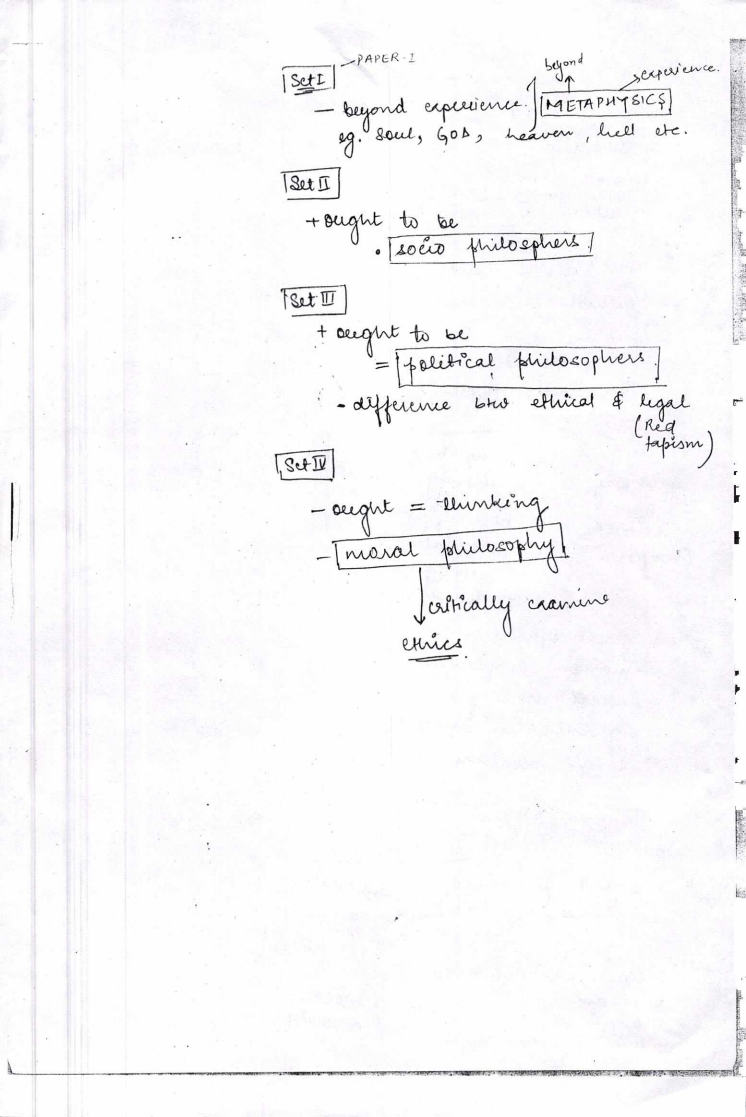 PAPER-I
Set I
beyond
experience.
- beyond experience.
METAPHYSICS
eg. soul, GOD, heaven, hell etc.
Set II
+ ought to be
• socio philosphers.
Set III
+ ought to be
= political philosophers.
- difference btw ethical & legal
(Red tapism)
Set IV
- ought = thinking
- moral philosophy
critically examine
ethics.